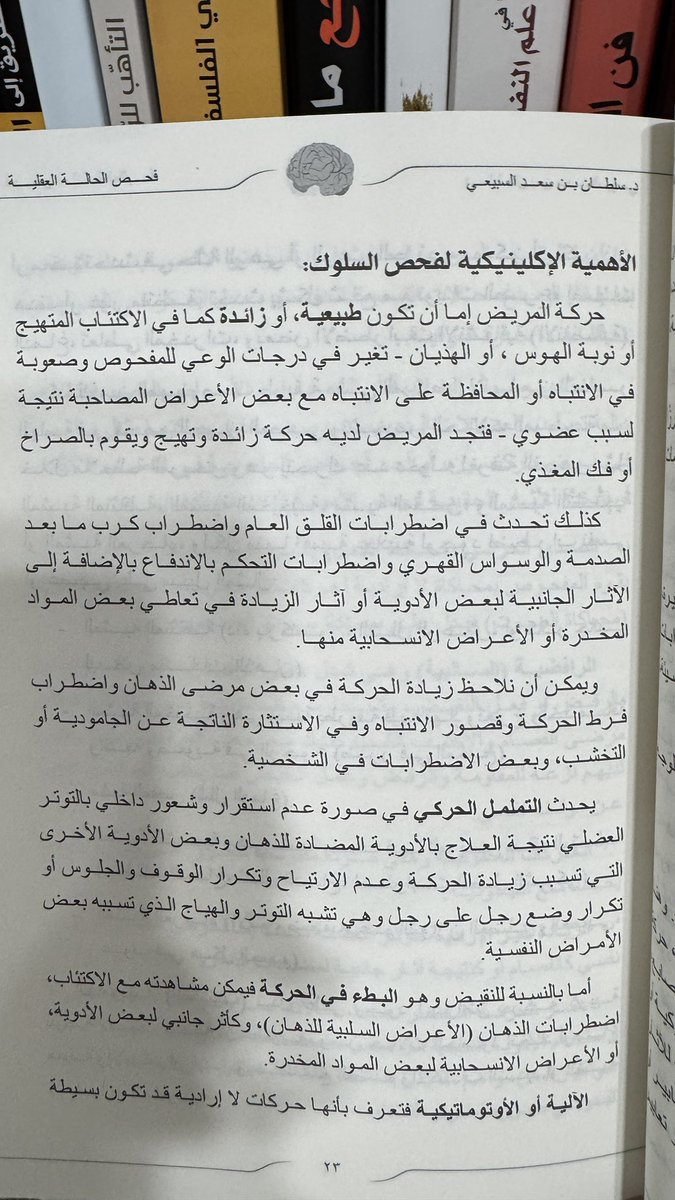 طريق إلى
التأهب
في الفلسف
جع ما
في
علم النف
فن
د. سلطان بن سعد السبيعي
فحص الحالة العقلية
الأهمية الإكلينيكية لفحص السلوك:
حركة المريض إما أن تكون طبيعية، أو زائدة كما في الاكتئاب المتهيج
أو نوبة الهوس ، أو الهذيان - تغير في درجات الوعي للمفحوص وصعوبة
في الانتباه أو المحافظة على الانتباه مع بعض الأعراض المصاحبة نتيجة
لسبب عضوي - فتجد المريض لديه حركة زائدة وتهيج ويقوم بالصراخ
أو فك المغذي.
كذلك تحدث في اضطرابات القلق العام واضطراب كرب ما بعد
الصدمة والوسواس القهري واضطرابات التحكم بالاندفاع بالإضافة إلى
الآثار الجانبية لبعض الأدوية أو آثار الزيادة في تعاطي بعض المواد
المخدرة أو الأعراض الانسحابية منها.
ويمكن أن نلاحظ زيادة الحركة في بعض مرضى الذهان واضطراب
فرط الحركة وقصور الانتباه وفي الاستثارة الناتجة عن الجامودية أو
التخشب، وبعض الاضطرابات في الشخصية.
يحدث التململ الحركي في صورة عدم استقرار وشعور داخلي بالتوتر
العضلي نتيجة العلاج بالأدوية المضادة للذهان وبعض الأدوية الأخرى
التي تسبب زيادة الحركة وعدم الارتياح وتكرار الوقوف والجلوس أو
تكرار وضع رجل على رجل وهي تشبه التوتر والهياج الذي تسببه بعض
الأمراض النفسية.
أما بالنسبة للنقيض وهو البطء في الحركة فيمكن مشاهدته مع الاكتئاب،
اضطرابات الذهان (الأعراض السلبية للذهان)، وكأثر جانبي لبعض الأدوية،
أو الأعراض الانسحابية لبعض المواد المخدرة.
الآلية أو الأوتوماتيكية فتعرف بأنها حركات لا إرادية قد تكون بسيطة
٢٣